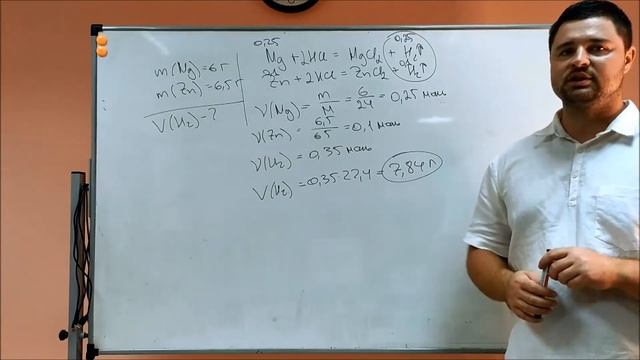 m(Mg)=6г
m(Zn)=6,5г
V(H₂)-?
0,25 0,25
Mg+2HCl=MgCl₂+H₂↑
0,1 0,1
Zn+2HCl=ZnCl₂+H₂↑
ν(Mg)=m/M=6/24=0,25 моль
ν(Zn)=6,5/65=0,1 моль
ν(H₂)=0,35 моль
V(H₂)=0,35·22,4=7,84 л